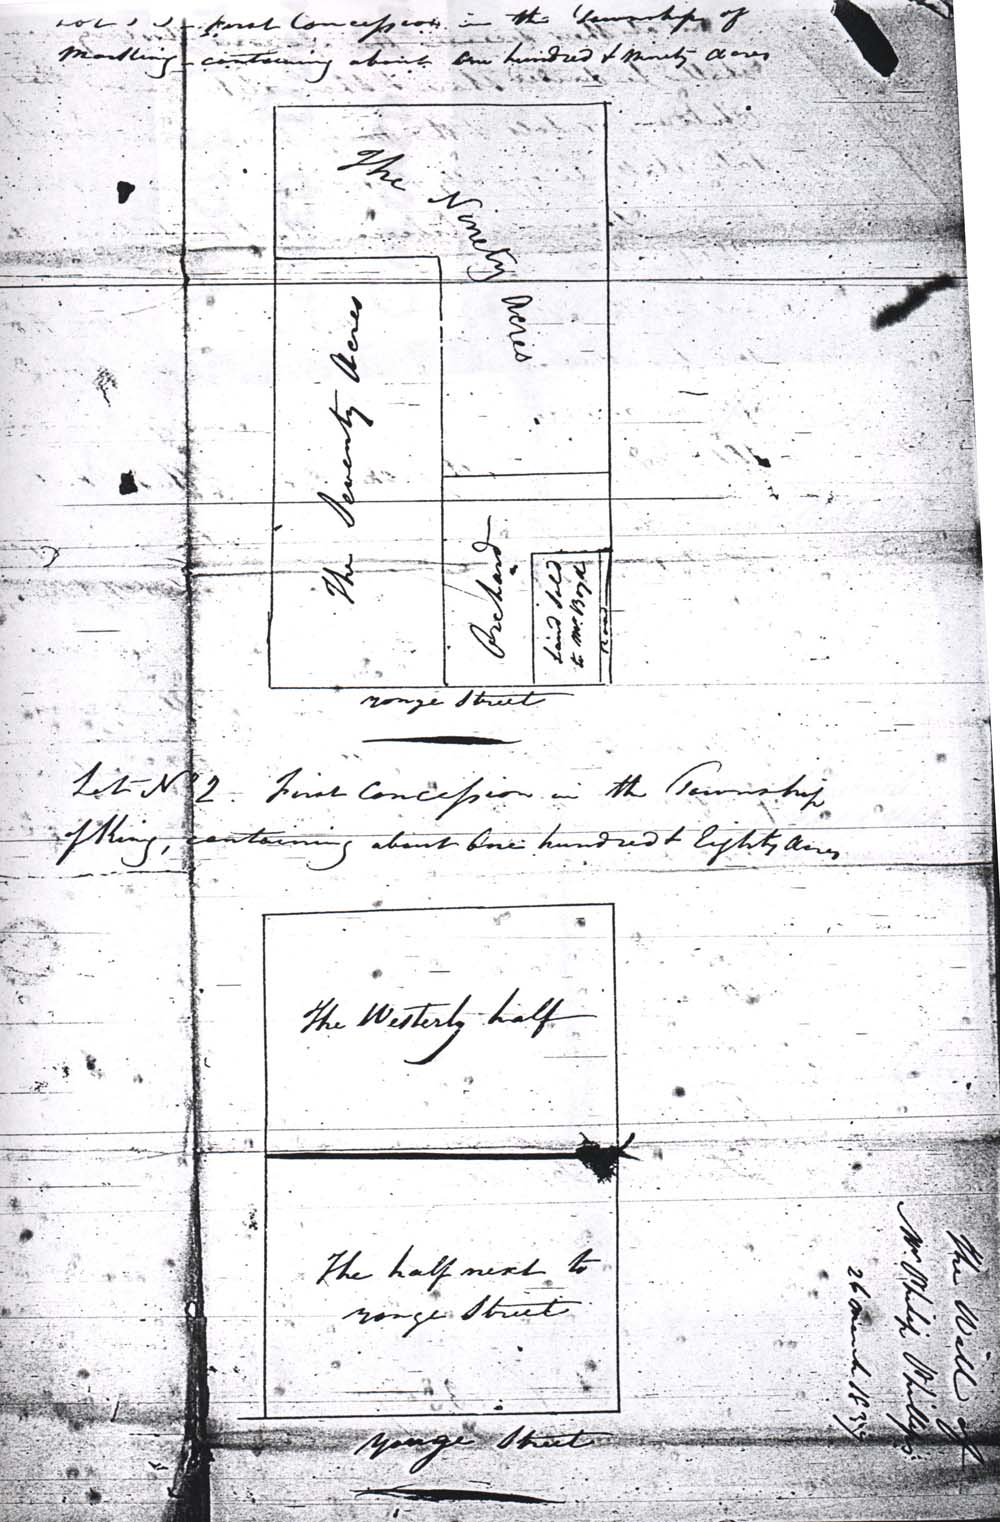 First Concession in the Township of
Markling containing about One hundred & Ninety Acres
The Ninety Acres
The Seventy Acres
Orchard
Land Sold
to Mr Boyd
Road
Yonge Street
Lot No 2. First Concession in the Township
of King, containing about One hundred & Eighty Acres
The Westerly half
The half next to
Yonge Street
Yonge Street
The Will of
Mr Philip Phillips
26 March